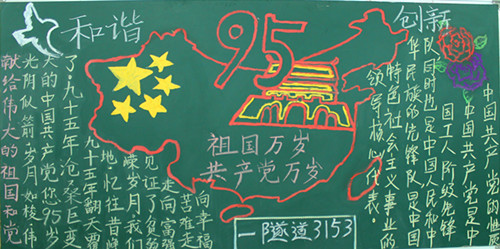 和谐
献给伟大的祖国和党
光阴似箭,岁月如梭,伟
大的中国共产党您95岁
了.九十五年,沧桑巨变
九十五年翻天覆
地.忆往昔峥
嵘岁月,我们
见证了贫弱
走向富强
苦难走
向幸福
95
祖国万岁
共产党万岁
一隧道3153
创新
中国共产党是中
国工人阶级先锋
队同时也是中国人民和中
华民族的先锋队是中国
特色社会主义事业的
领导核心,代表